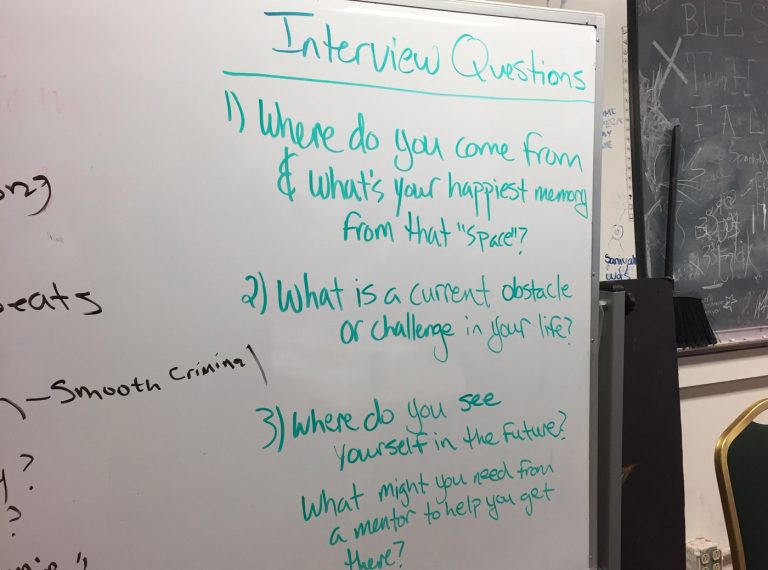 Interview Questions
1) Where do you come from
& What's your happiest memory
from that "space"?
2) What is a current obstacle
or challenge in your life?
3) Where do you see
yourself in the future?
What might you need from
a mentor to help you get
there?
eats
- Smooth Criminal
?
?
BLES